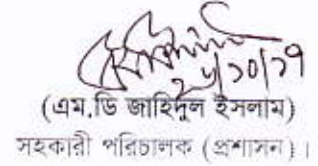 ২৬/১০/১৭
(এম.ডি জাহিদুল ইসলাম)
সহকারী পরিচালক (প্রশাসন)।